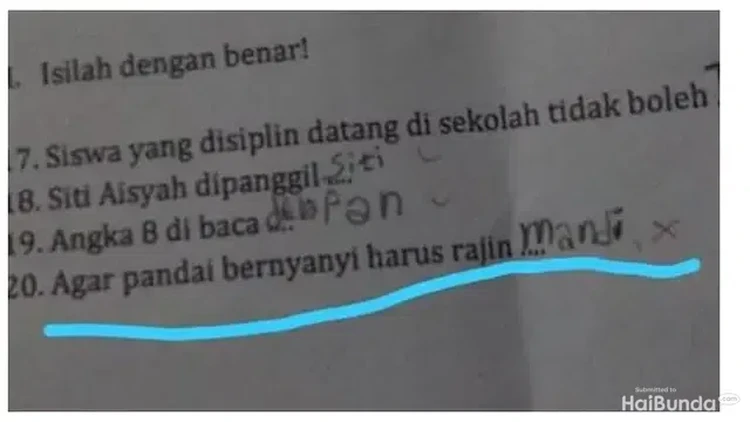 . Isilah dengan benar!
17. Siswa yang disiplin datang di sekolah tidak boleh
18. Siti Aisyah dipanggil ... Siti
19. Angka 8 di baca delapan
20. Agar pandai bernyanyi harus rajin .... mandi. ×
Submitted to
HaiBunda.com